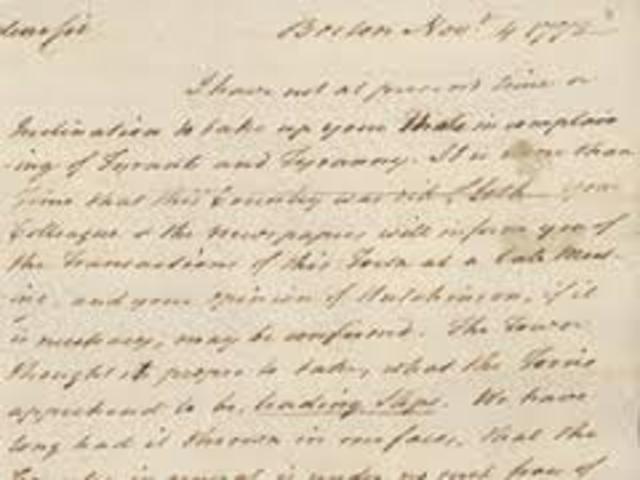 dear Sir Boston Novr 4 1772
I have not at present time or
Inclination to take up your time in complain
-ing of Tyrants and Tyranny. It is more than
time that this Country was rid of both your
Colleague & the newspapers will inform you of
the Transactions of this Town at a late Meet-
ing, and your opinion of Hutchinson, if it
is necessary, may be confirmed. The Town
thought it proper to take, what the Tories
apprehend to be, leading Steps. We have
long had it thrown in our faces, that the
in general is under no such fears of